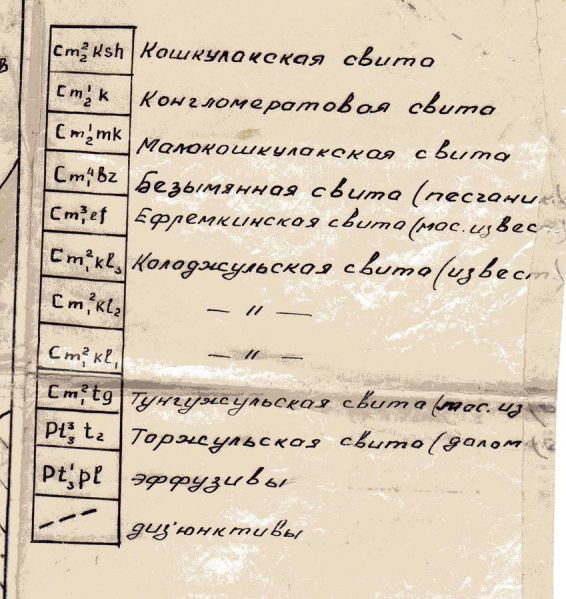 Cm²₂ksh Кошкулакская свита
Cm¹₂k Конгломератовая свита
Cm¹₂mk Малокошкулакская свита
Cm⁴₁Bz Безымянная свита (песчани
Cm³₁ef Ефремкинская свита (мас. извес
Cm²₁kl₃ Колоджульская свита (извест.)
Cm²₁kl₂ — " —
Cm²₁kl₁ — " —
Cm²₁tg Тунгужульская свита (мас. из
Pt³₃t₂ Таржульская свита (далом
Pt¹₃pl эффузивы
диз'юнктивы